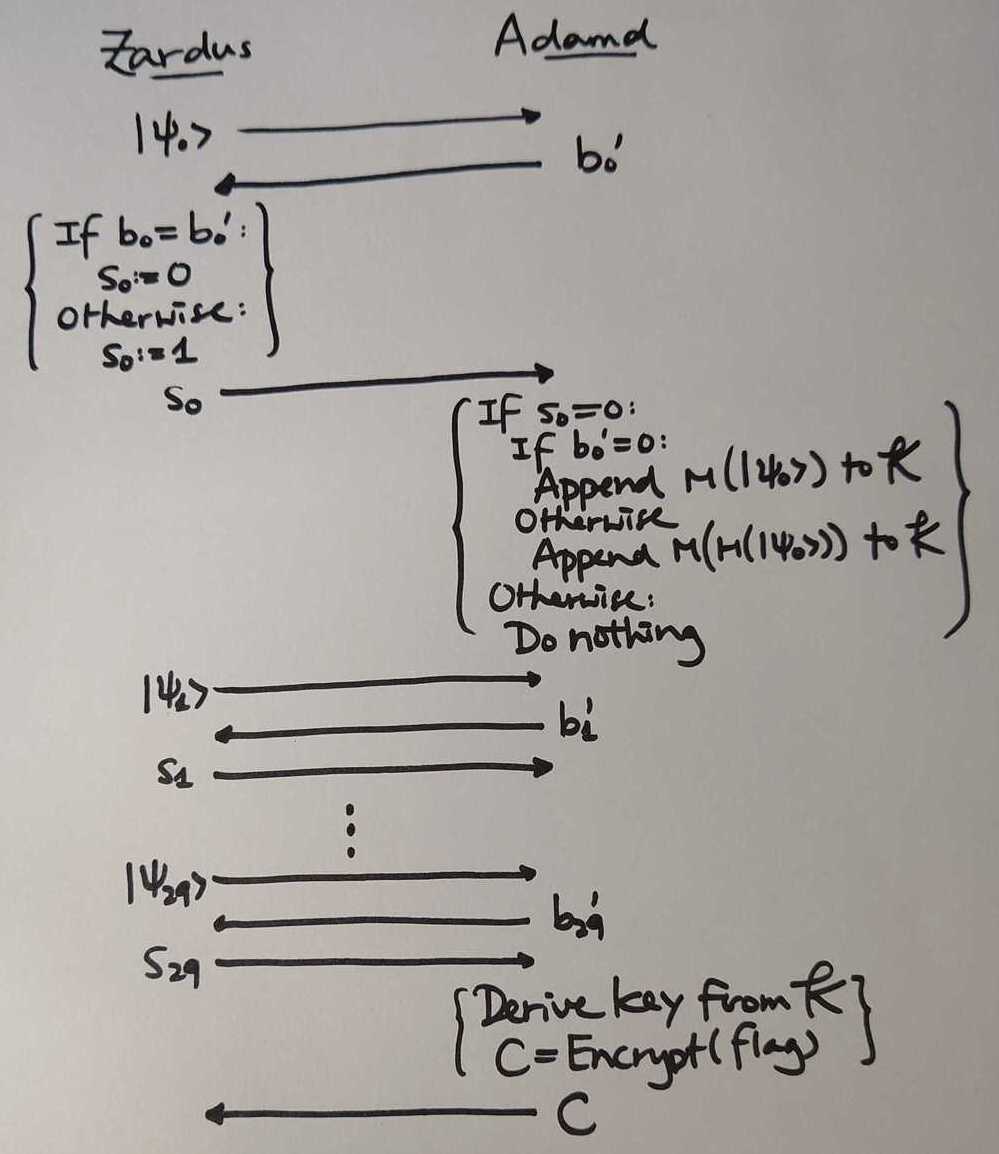 Zardus Adamd
|ψ₀>
b₀'
If b₀=b₀':
S₀:=0
Otherwise:
S₀:=1
S₀
If S₀=0:
If b₀'=0:
Append M(|ψ₀>) to K
Otherwise
Append M(H(|ψ₀>)) to K
Otherwise:
Do nothing
|ψ₁>
b₁'
S₁
⋮
|ψ₂₉>
b₂₉'
S₂₉
Derive key from K
C=Encrypt(flag)
C